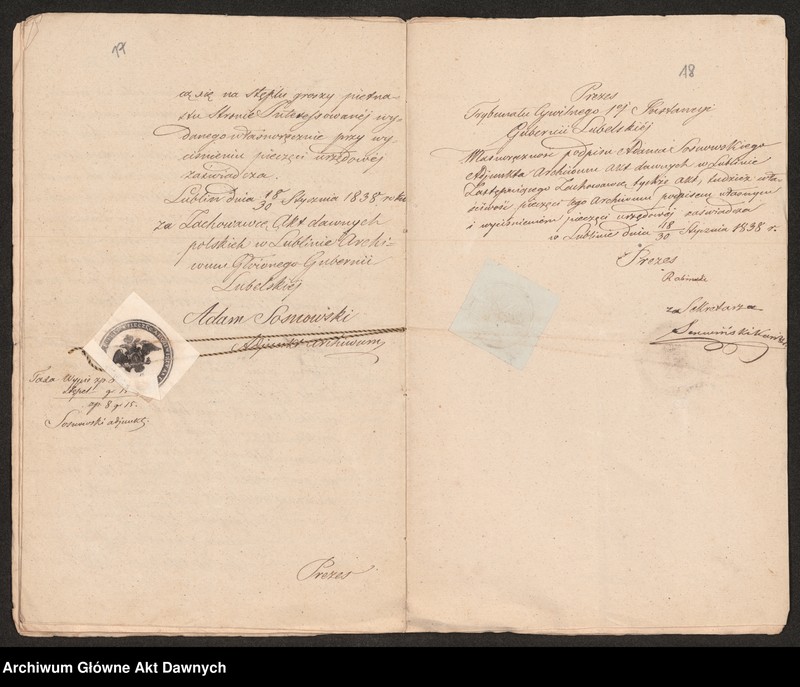 17
cą się na stęplu groszy piętna-
stu Stronie Interessowanéj wy-
danego własnoręcznie przy wy-
ciśnieniu pieczęci urzędowéj
zaświadcza.
Lublin dnia 18/30 Stycznia 1838 roku
za Zachowawcę Akt dawnych
polskich w Lublinie Archi-
wum Głównego Gubernii
Lubelskiéj
Adam Sosnowski
Adjunkt Archiwum
Taxa Wypis zp.
Stępel g. 15
zp. 8 g. 15.
Sosnowski adjunkt
Prezes
18
Prezes
Trybunału Cywilnego 1éj Instancyi
Gubernii Lubelskiéj
Własnoręczność podpisu Adama Sosnowskiego
Adjunkta Archiwum Akt dawnych w Lublinie
Zastępującego Zachowawcę tychże Akt, tudzież wła-
ściwość pieczęci tego Archiwum podpisem własnym
i wyciśnieniem pieczęci urzędowéj zaświadcza
w Lublinie dnia 18/30 Stycznia 1838 r.
Prezes
za Sekretarza
Archiwum Główne Akt Dawnych